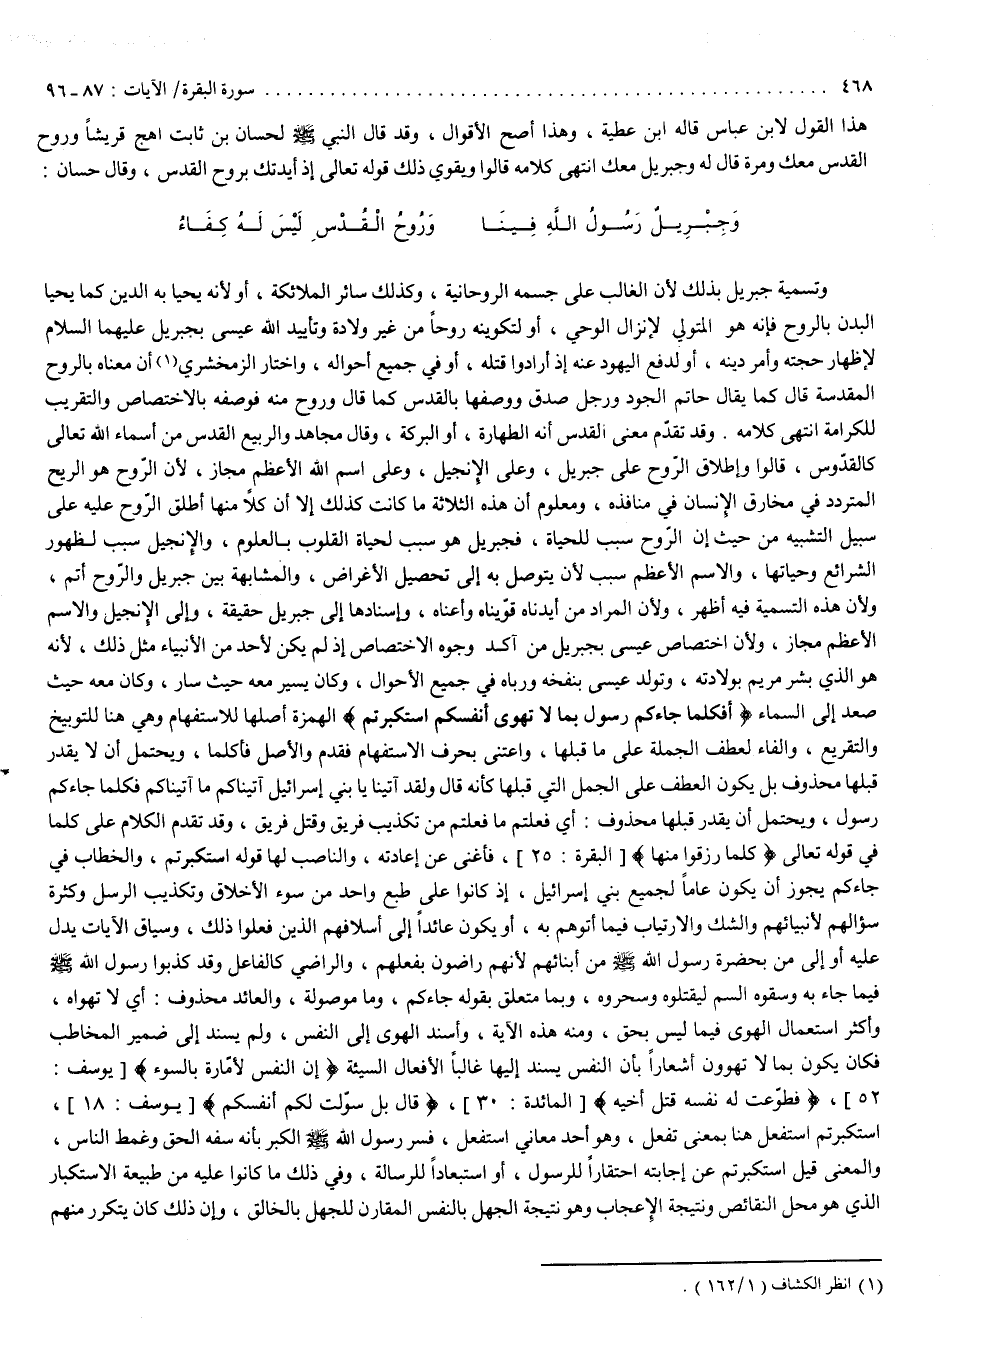 ٤٦٨ . . . . . . . . . . . . . . . . . . . . . . . . . . . . . . . . . . . . . . . . . . . . . . . . . . . . . سورة البقرة/ الآيات : ٨٧ ـ ٩٦
هذا القول لابن عباس قاله ابن عطية ، وهذا أصح الأقوال ، وقد قال النبي ﷺ لحسان بن ثابت اهج قريشاً وروح
القدس معك ومرة قال له وجبريل معك انتهى كلامه قالوا ويقوي ذلك قوله تعالى إذ أيدتك بروح القدس ، وقال حسان :
وَجِبْرِيلٌ رَسُولُ اللَّهِ فِينَا وَرُوحُ الْقُدْسِ لَيْسَ لَهُ كِفَاءُ
وتسمية جبريل بذلك لأن الغالب على جسمه الروحانية ، وكذلك سائر الملائكة ، أو لأنه يحيا به الدين كما يحيا
البدن بالروح فإنه هو المتولي لإنزال الوحي ، أو لتكوينه روحاً من غير ولادة وتأييد الله عيسى بجبريل عليهما السلام
لإظهار حجته وأمر دينه ، أو لدفع اليهود عنه إذ أرادوا قتله ، أو في جميع أحواله ، واختار الزمخشري(١) أن معناه بالروح
المقدسة قال كما يقال حاتم الجود ورجل صدق ووصفها بالقدس كما قال وروح منه فوصفه بالاختصاص والتقريب
للكرامة انتهى كلامه . وقد تقدّم معنى القدس أنه الطهارة ، أو البركة ، وقال مجاهد والربيع القدس من أسماء الله تعالى
كالقدّوس ، قالوا وإطلاق الرّوح على جبريل ، وعلى الإنجيل ، وعلى اسم الله الأعظم مجاز ، لأن الرّوح هو الريح
المتردد في مخارق الإنسان في منافذه ، ومعلوم أن هذه الثلاثة ما كانت كذلك إلا أن كلاً منها أطلق الرّوح عليه على
سبيل التشبيه من حيث إن الرّوح سبب للحياة ، فجبريل هو سبب لحياة القلوب بالعلوم ، والإنجيل سبب لظهور
الشرائع وحياتها ، والاسم الأعظم سبب لأن يتوصل به إلى تحصيل الأغراض ، والمشابهة بين جبريل والرّوح أتم ،
ولأن هذه التسمية فيه أظهر ، ولأن المراد من أيدناه قوّيناه وأعناه ، وإسنادها إلى جبريل حقيقة ، وإلى الإنجيل والاسم
الأعظم مجاز ، ولأن اختصاص عيسى بجبريل من آكد وجوه الاختصاص إذ لم يكن لأحد من الأنبياء مثل ذلك ، لأنه
هو الذي بشر مريم بولادته ، وتولد عيسى بنفخه ورباه في جميع الأحوال ، وكان يسير معه حيث سار ، وكان معه حيث
صعد إلى السماء ﴿ أفكلما جاءكم رسول بما لا تهوى أنفسكم استكبرتم ﴾ الهمزة أصلها للاستفهام وهي هنا للتوبيخ
والتقريع ، والفاء لعطف الجملة على ما قبلها ، واعتنى بحرف الاستفهام فقدم والأصل فأكلما ، ويحتمل أن لا يقدر
قبلها محذوف بل يكون العطف على الجمل التي قبلها كأنه قال ولقد آتينا يا بني إسرائيل آتيناكم ما آتيناكم فكلما جاءكم
رسول ، ويحتمل أن يقدر قبلها محذوف : أي فعلتم ما فعلتم من تكذيب فريق وقتل فريق ، وقد تقدم الكلام على كلما
في قوله تعالى ﴿ كلما رزقوا منها ﴾ [ البقرة : ٢٥ ] ، فأغنى عن إعادته ، والناصب لها قوله استكبرتم ، والخطاب في
جاءكم يجوز أن يكون عاماً لجميع بني إسرائيل ، إذ كانوا على طبع واحد من سوء الأخلاق وتكذيب الرسل وكثرة
سؤالهم لأنبيائهم والشك والارتياب فيما أتوهم به ، أو يكون عائداً إلى أسلافهم الذين فعلوا ذلك ، وسياق الآيات يدل
عليه أو إلى من بحضرة رسول الله ﷺ من أبنائهم لأنهم راضون بفعلهم ، والراضي كالفاعل وقد كذبوا رسول الله ﷺ
فيما جاء به وسقوه السم ليقتلوه وسحروه ، وبما متعلق بقوله جاءكم ، وما موصولة ، والعائد محذوف : أي لا تهواه ،
وأكثر استعمال الهوى فيما ليس بحق ، ومنه هذه الآية ، وأسند الهوى إلى النفس ، ولم يسند إلى ضمير المخاطب
فكان يكون بما لا تهوون أشعاراً بأن النفس يسند إليها غالباً الأفعال السيئة ﴿ إن النفس لأمّارة بالسوء ﴾ [ يوسف :
٥٢ ] ، ﴿ فطوّعت له نفسه قتل أخيه ﴾ [ المائدة : ٣٠ ] ، ﴿ قال بل سوّلت لكم أنفسكم ﴾ [ يوسف : ١٨ ] ،
استكبرتم استفعل هنا بمعنى تفعل ، وهو أحد معاني استفعل ، فسر رسول الله ﷺ الكبر بأنه سفه الحق وغمط الناس ،
والمعنى قيل استكبرتم عن إجابته احتقاراً للرسول ، أو استبعاداً للرسالة ، وفي ذلك ما كانوا عليه من طبيعة الاستكبار
الذي هو محل النقائص ونتيجة الإعجاب وهو نتيجة الجهل بالنفس المقارن للجهل بالخالق ، وإن ذلك كان يتكرر منهم
(١) انظر الكشاف ( ١/ ١٦٢ ) .